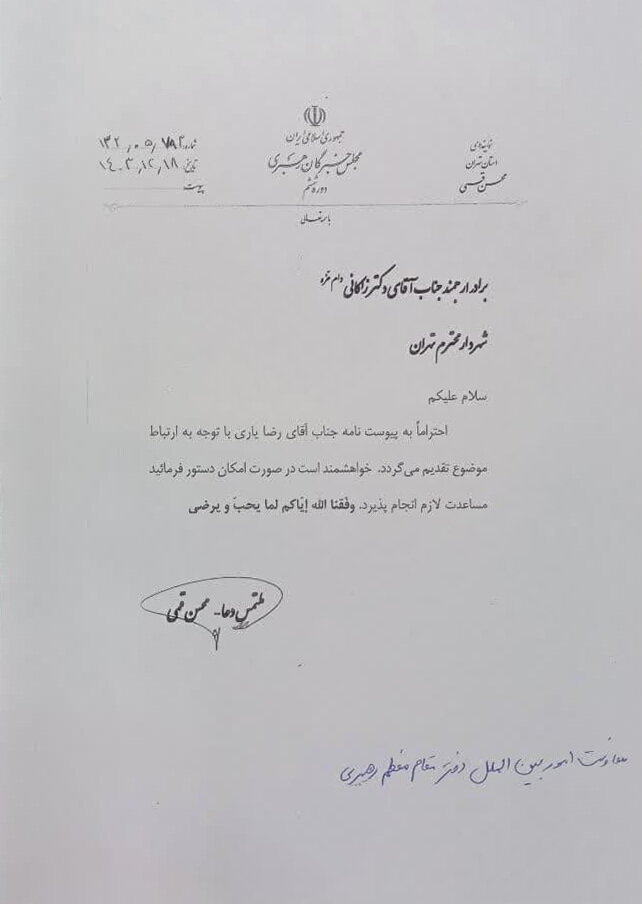 جمهوری اسلامی ایران
مجلس خبرگان رهبری
دوره ششم
نماینده‌ی
استان تهران
محسن قمی
شماره: ۱۳۲٫۰۵٫۷۸۳
تاریخ: ۱۴۰۳٫۱۲٫۱۸
پیوست:
باسمه‌تعالی
برادر ارجمند جناب آقای دکتر زاکانی دام عزّه
شهردار محترم تهران
سلام علیکم
احتراماً به پیوست نامه جناب آقای رضا یاری با توجه به ارتباط
موضوع تقدیم می‌گردد. خواهشمند است در صورت امکان دستور فرمائید
مساعدت لازم انجام پذیرد. وفّقنا الله إیّاکم لما یحبّ و یرضی
ملتمس دعا - محسن قمی
معاونت امور بین الملل دفتر مقام معظم رهبری